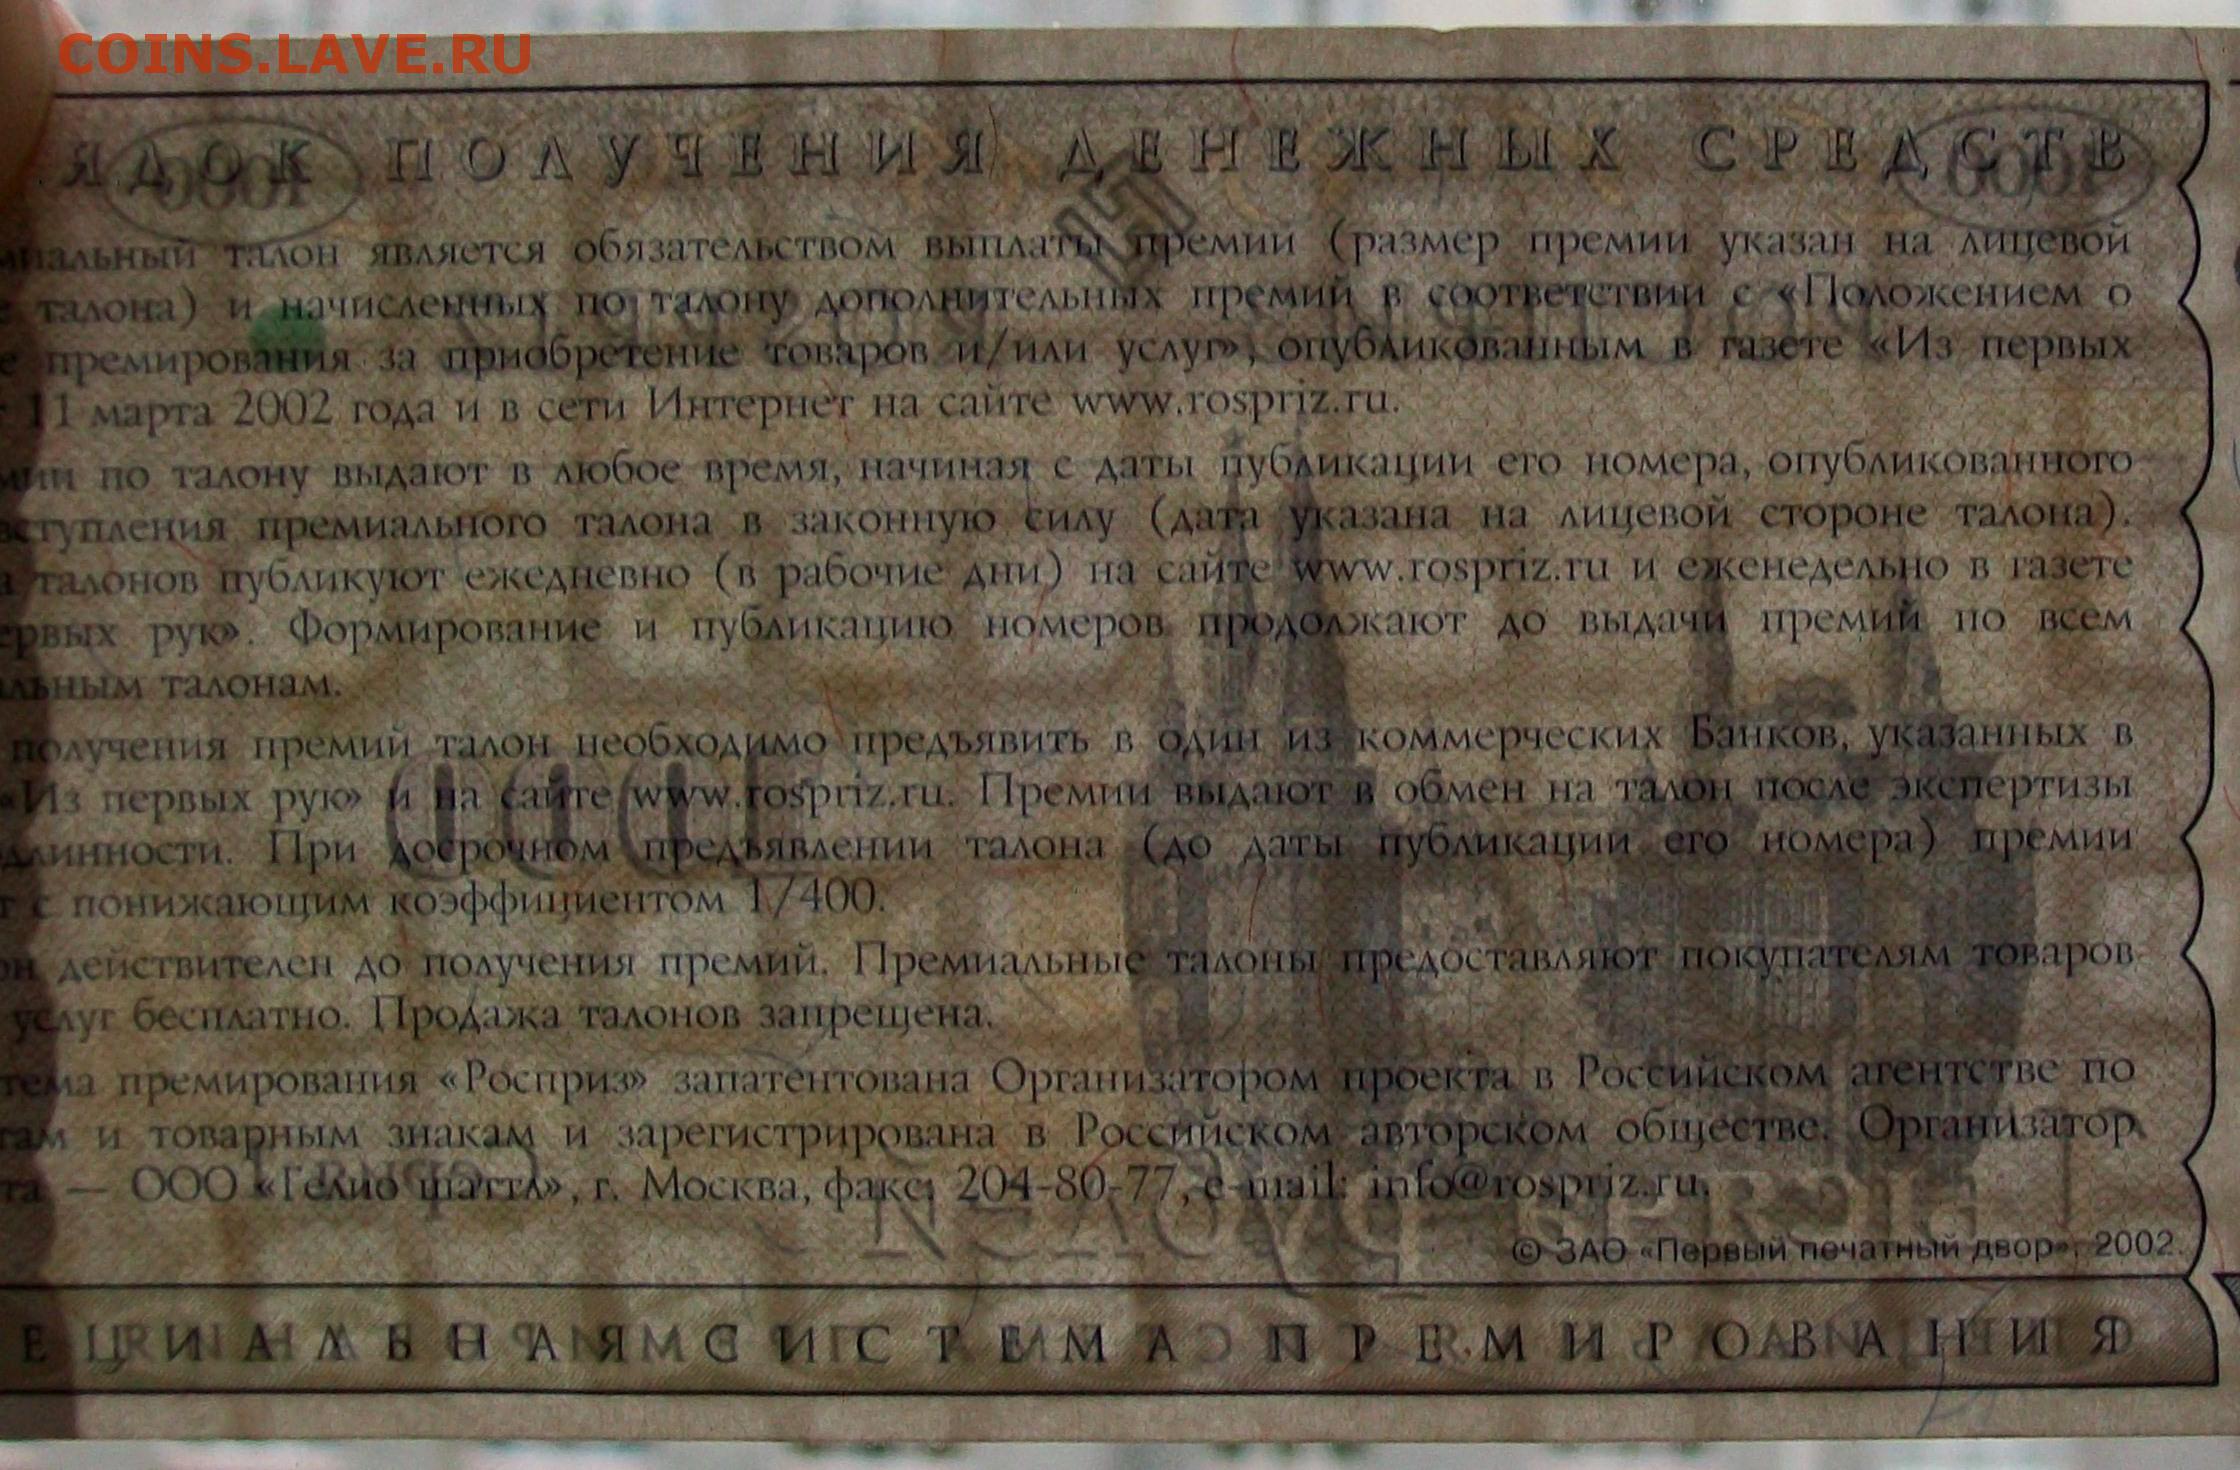 COINS.LAVE.RU
ЯДОК ПОЛУЧЕНИЯ ДЕНЕЖНЫХ СРЕДСТВ
миальный талон является обязательством выплаты премии (размер премии указан на лицевой
е талона) и начисленных по талону дополнительных премий в соответствии с «Положением о
е премирования за приобретение товаров и/или услуг», опубликованным в газете «Из первых
11 марта 2002 года и в сети Интернет на сайте www.rospriz.ru.
мии по талону выдают в любое время, начиная с даты публикации его номера, опубликованного
вступления премиального талона в законную силу (дата указана на лицевой стороне талона).
а талонов публикуют ежедневно (в рабочие дни) на сайте www.rospriz.ru и еженедельно в газете
ервых рук». Формирование и публикацию номеров продолжают до выдачи премий по всем
альным талонам.
получения премий талон необходимо предъявить в один из коммерческих Банков, указанных в
«Из первых рук» и на сайте www.rospriz.ru. Премии выдают в обмен на талон после экспертизы
длинности. При досрочном предъявлении талона (до даты публикации его номера) премии
т с понижающим коэффициентом 1/400.
он действителен до получения премий. Премиальные талоны предоставляют покупателям товаров
услуг бесплатно. Продажа талонов запрещена.
тема премирования «Росприз» запатентована Организатором проекта в Российском агентстве по
там и товарным знакам и зарегистрирована в Российском авторском обществе. Организатор
та — ООО «Гелио шаттл», г. Москва, факс: 204-80-77, e-mail: info@rospriz.ru.
© ЗАО «Первый печатный двор», 2002.
ЕЦИАЛЬНАЯ СИСТЕМА ПРЕМИРОВАНИЯ